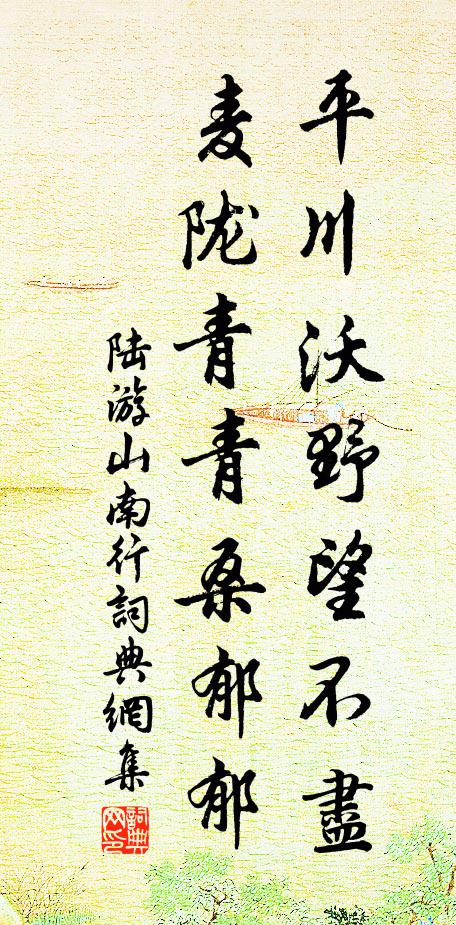 平川沃野望不盡
麦陇青青桑郁郁
陆游山南行詞典網集
詞典网印